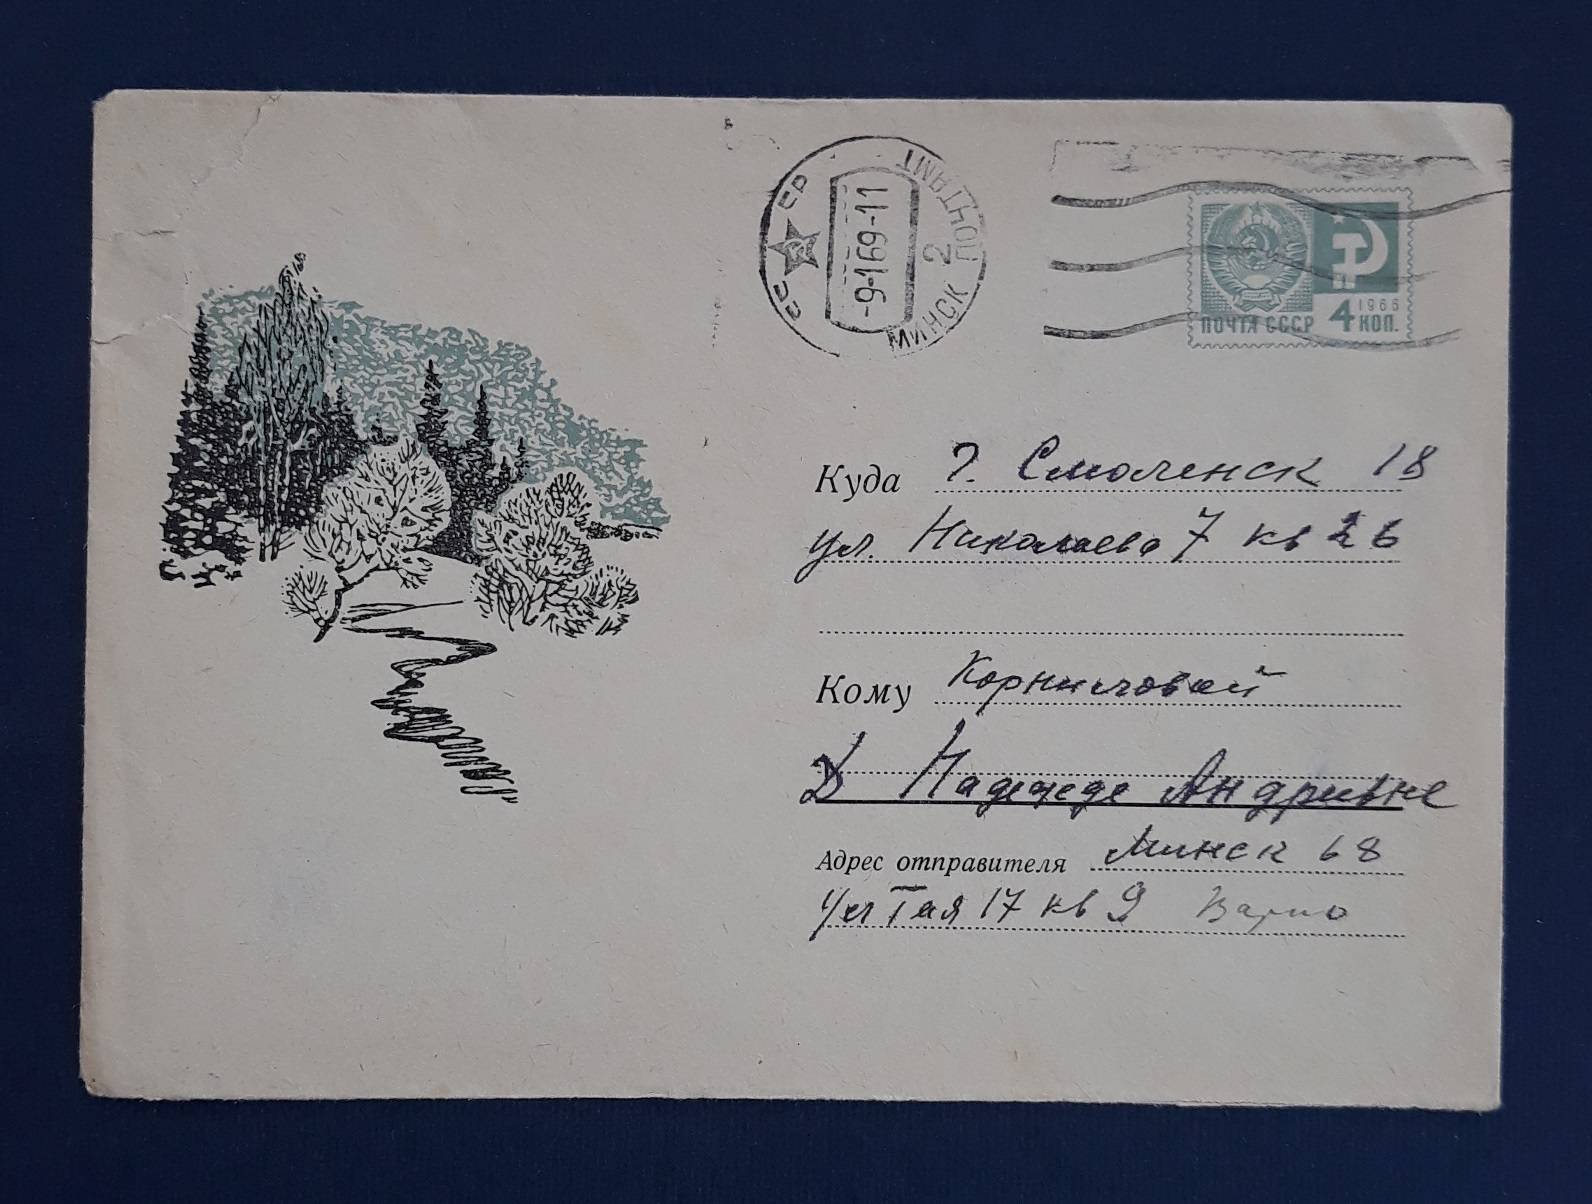 СССР
МИНСК 2 ПОЧТАМТ
-9-169-11
ПОЧТА СССР 4 1966 КОП.
Куда г. Смоленск 18
ул. Николаева 7 кв 26
Кому Корниловой
Надежде Андривне
Адрес отправителя Минск 68
ул Гая 17 кв 9